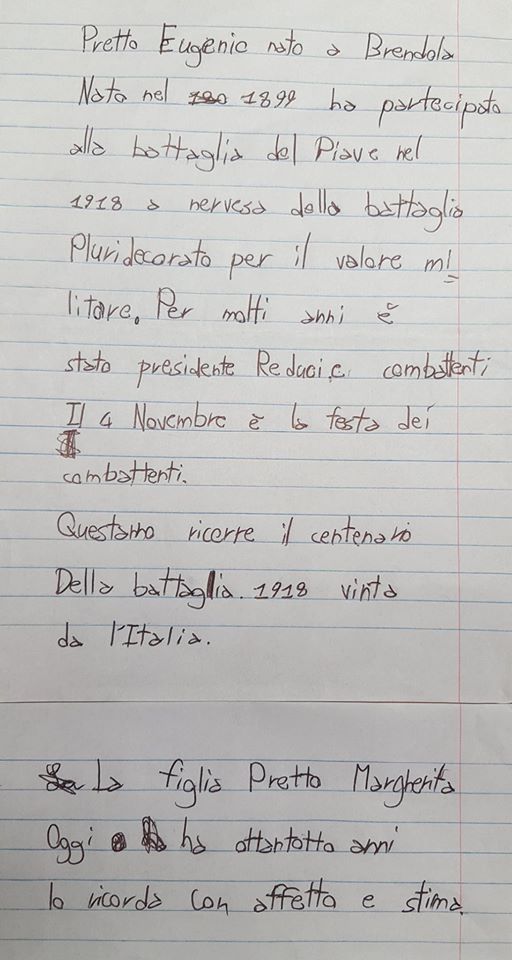 Pretto Eugenio nato a Brendola
Nato nel 1899 ha partecipato
alla battaglia del Piave nel
1918 a nervesa della battaglia
Pluridecorato per il valore mi=
litare. Per molti anni è
stato presidente Reduci e combattenti
Il 4 Novembre è la festa dei
combattenti.
Questanno ricorre il centenario
Della battaglia. 1918 vinta
da l'Italia.
La figlia Pretto Margherita
Oggi ha ottantotto anni
lo ricorda con affetto e stima